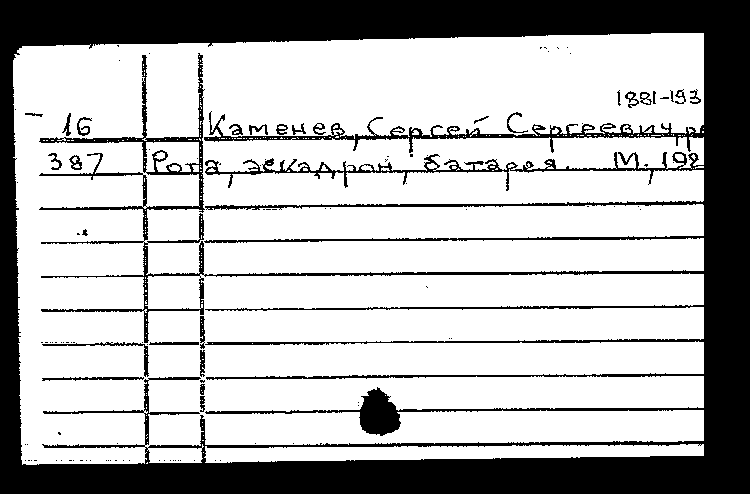 1881-193
16 Каменев, Сергей Сергеевич, ре
387 Рота, эскадрон, батарея. М., 192